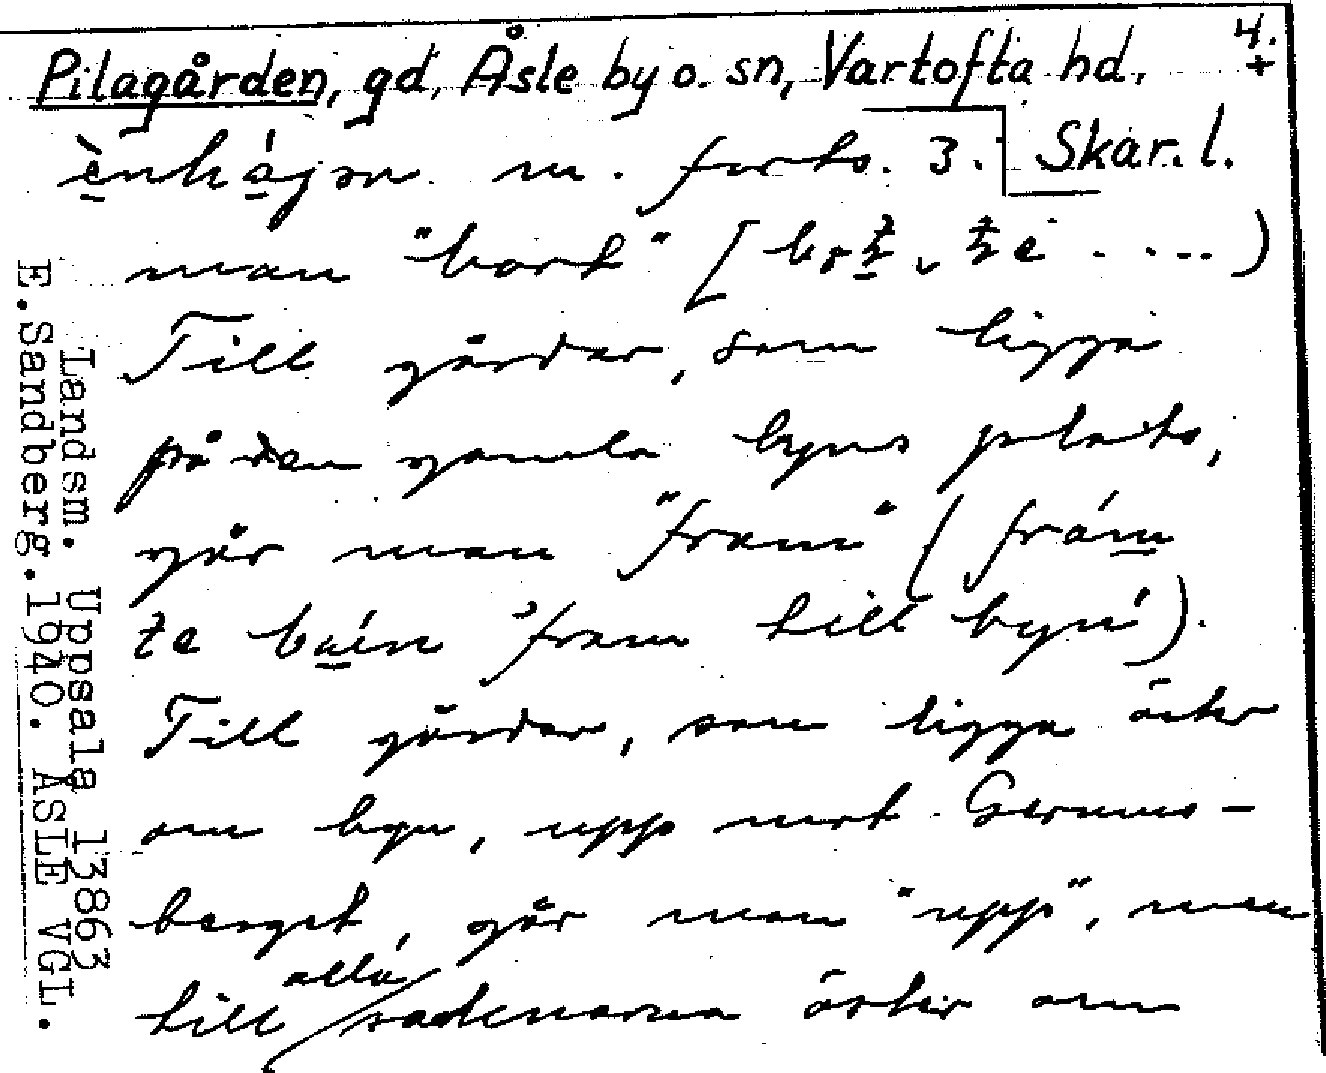 Pilagården, gd, Åsle by o. sn, Vartofta hd,
4.
+
Skar. l.
m. forts. 3.
man "bort" [
Till gårdar, som ligga
på den gamla byns plats,
går man "fram" (fràm
te buén 'fram till byn').
Till gårdar, som ligga öster
om byn, upp mot Gerums-
berget, går man "upp", men
till alla
öster om
Landsm. Uppsala 13863
E.Sandberg.1940. ÅSLE VGL.